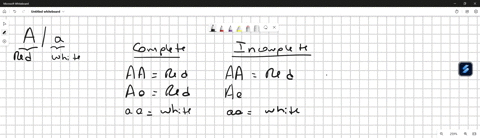 Microsoft Whiteboard
Untitled whiteboard
A / a
Red white
Complete Incomplete
AA = Red AA = Red
Aa = Red Aa
aa = white aa = white